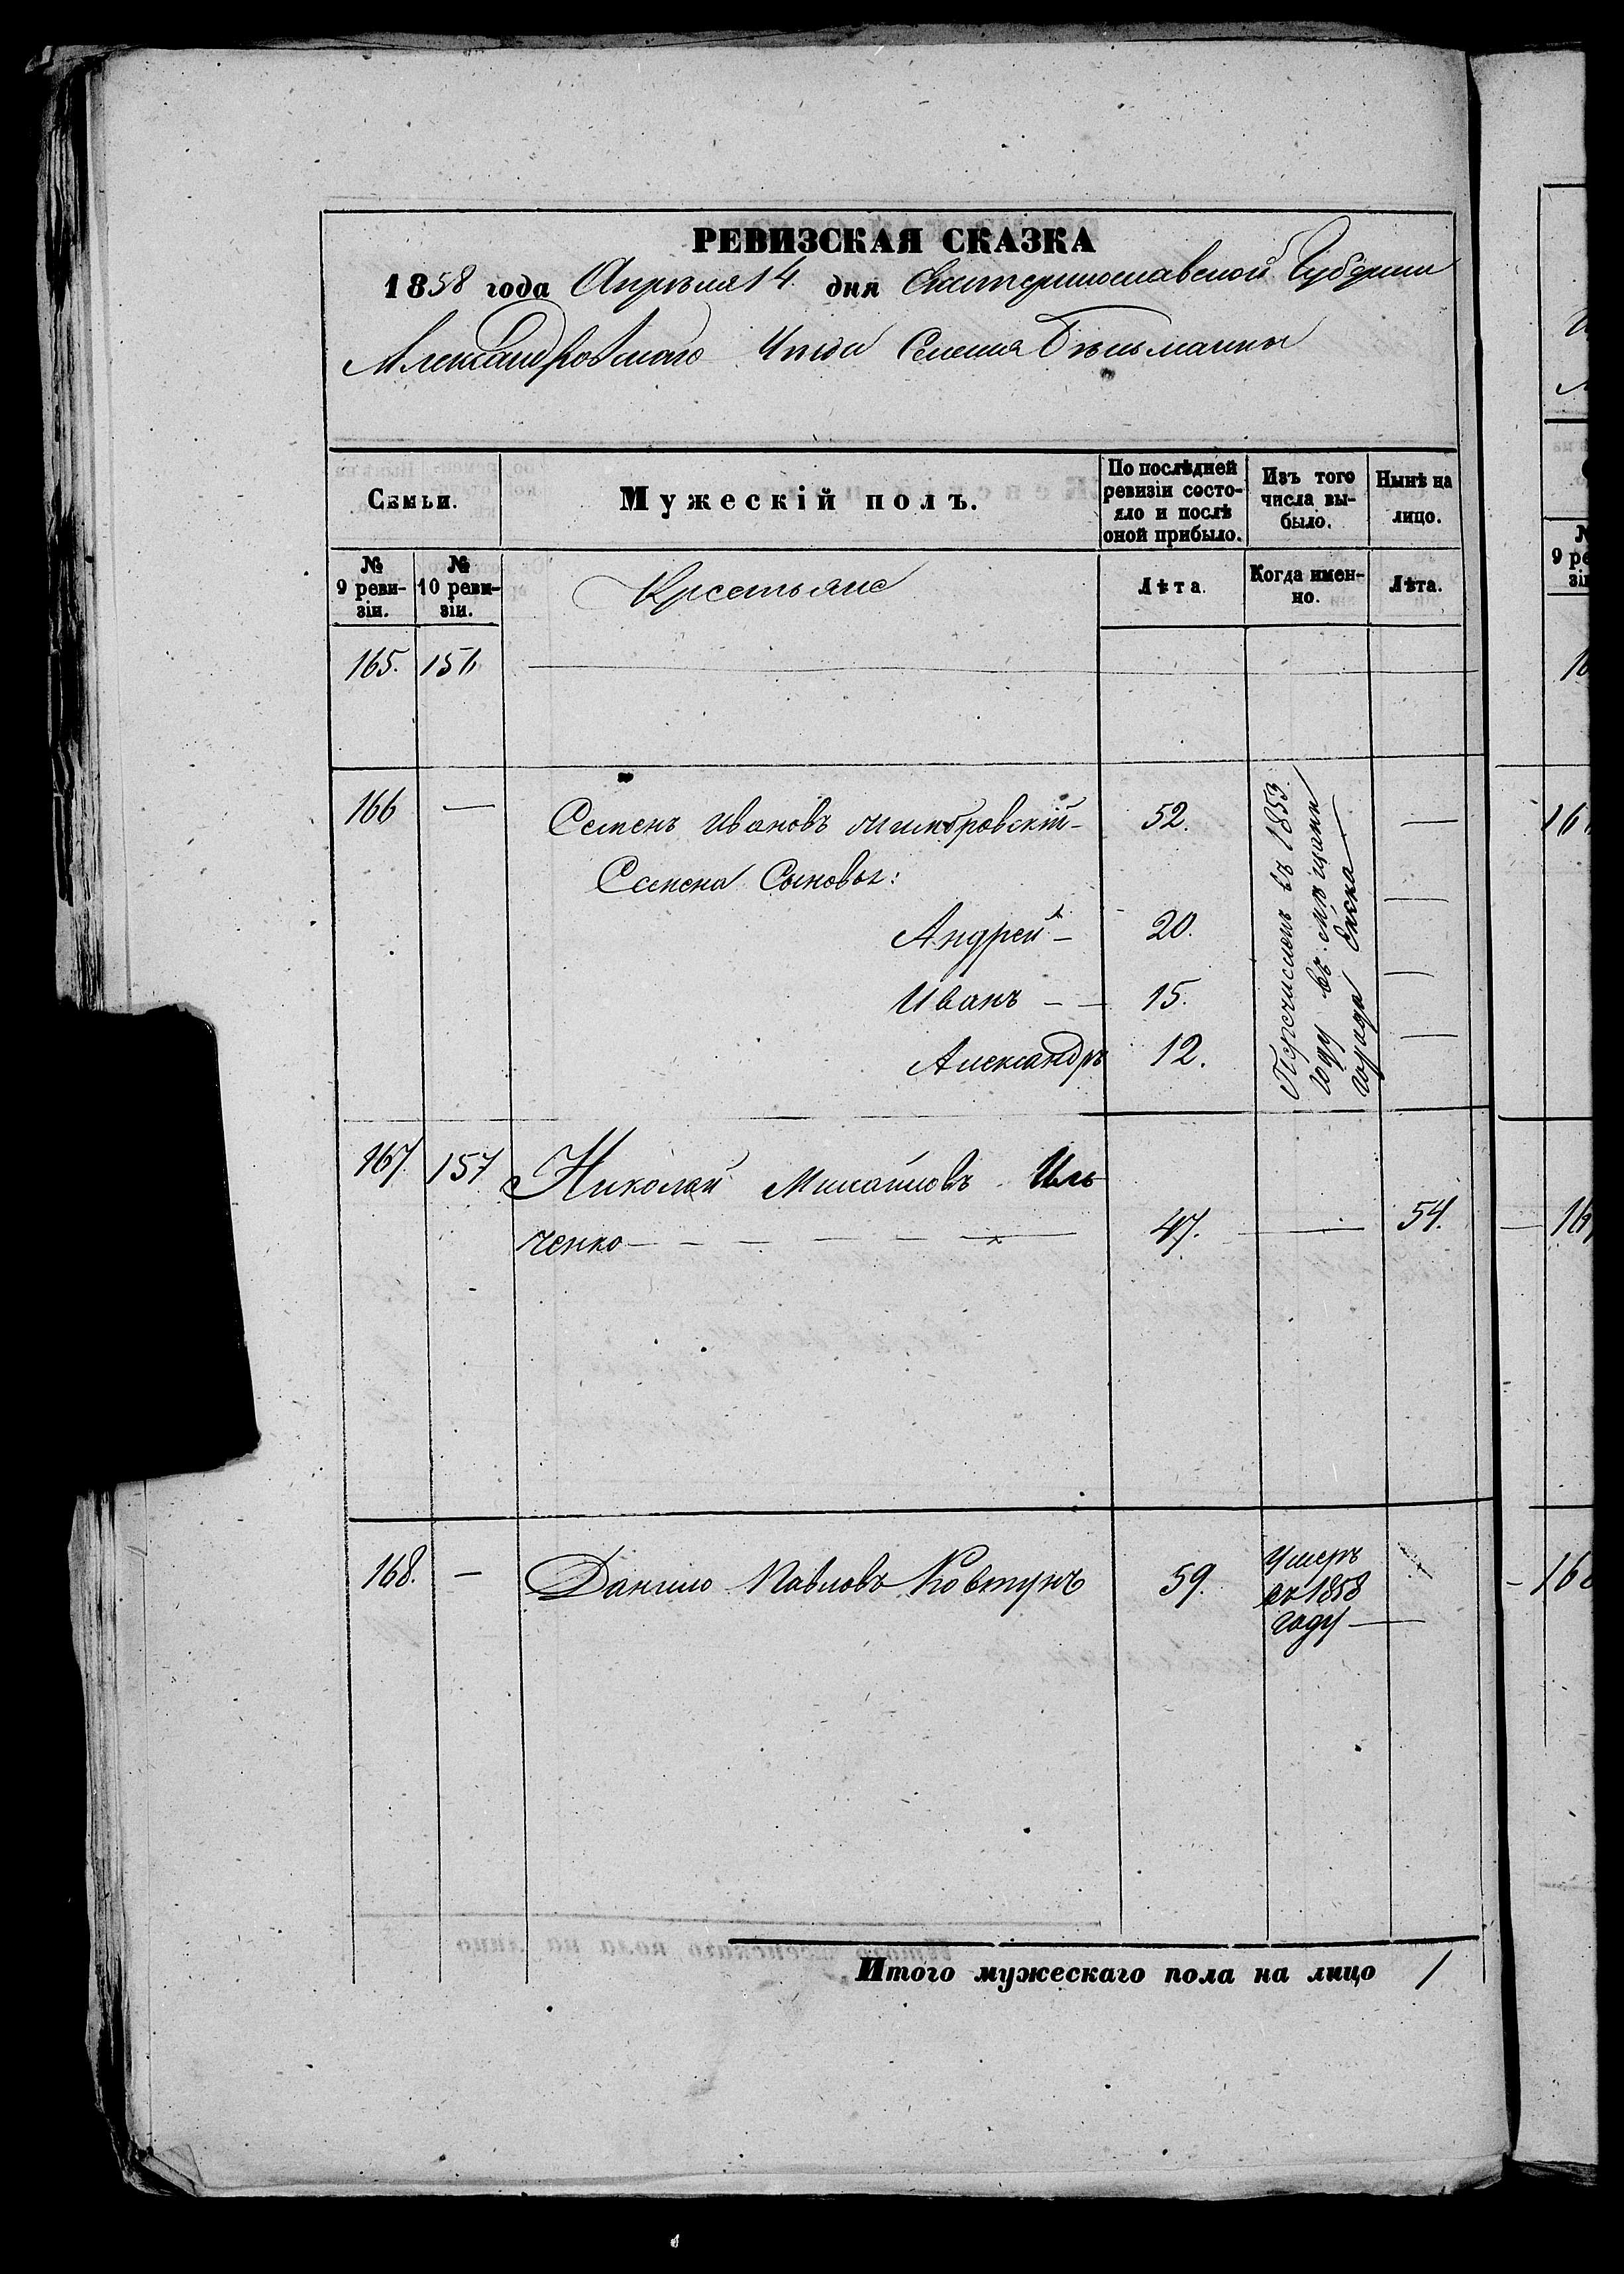 РЕВИЗСКАЯ СКАЗКА
1858 года Апрѣля 14 дня Екатеринославской Губерніи
Александровскаго Уѣзда Селенія Бѣльманки
Семьи. Мужескій полъ. По послѣдней ревизіи состояло и послѣ оной прибыло. Изъ того числа выбыло. Нынѣ на лицо.
№ 9 ревизіи. № 10 ревизіи. Крестьяне Лѣта. Когда именно. Лѣта.
165. 156
166 — Семенъ Ивановъ 52. —
Семена Сыновья:
Андрей — 20. —
Иванъ — — 15. —
Александръ 12. —
Перечислен въ 1853
году въ мѣщани
города Ейска
167. 157 Николай Михайловъ Иль
ченко — — — 47. — 54.
168. — Данило Павловъ Ковтунъ 59. Умеръ
въ 1858
году —
Итого мужескаго пола на лицо 1
9 ре
зі
16
16
16
168